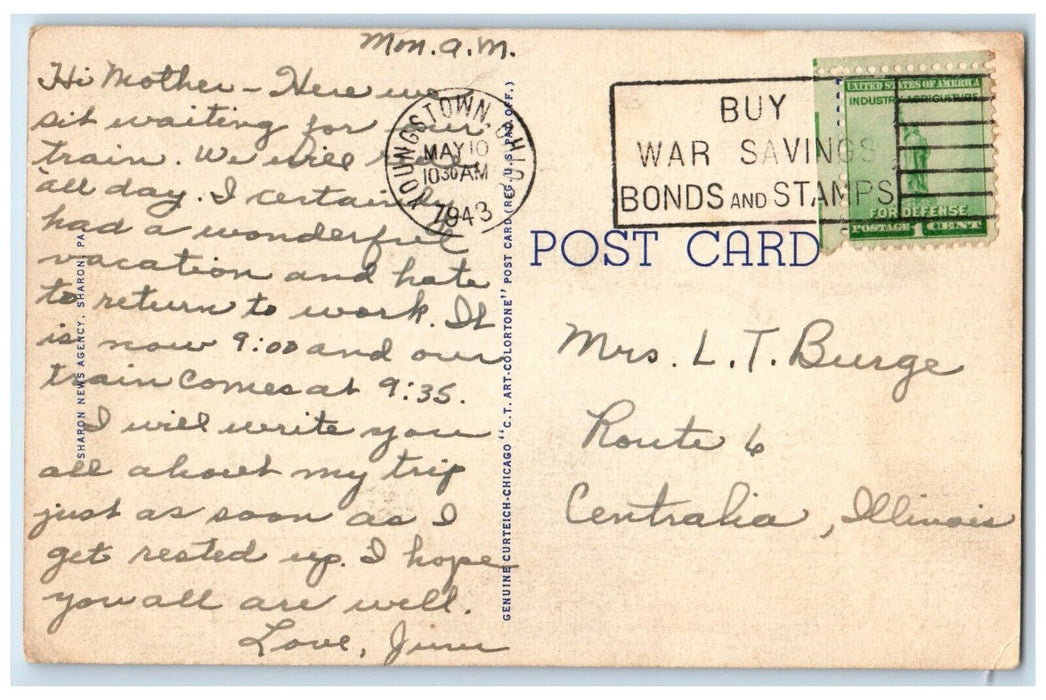 Mon. a.m.
Hi Mother - Here we
sit waiting for our
train. We will ride
all day. I certainly
had a wonderful
vacation and hate
to return to work. It
is now 9:00 and our
train comes at 9:35.
I will write you
all about my trip
just as soon as I
get rested up. I hope
you all are well.
Love, June
SHARON NEWS AGENCY, SHARON, PA.
GENUINE CURTEICH-CHICAGO "C.T. ART-COLORTONE" POST CARD (REG. U.S. PAT. OFF.)
YOUNGSTOWN, OHIO
MAY 10
10 30 AM
1943
BUY
WAR SAVINGS
BONDS AND STAMPS
UNITED STATES OF AMERICA
INDUSTRY AGRICULTURE
FOR DEFENSE
POSTAGE 1 CENT
POST CARD
Mrs. L. T. Burge
Route 6
Centralia, Illinois